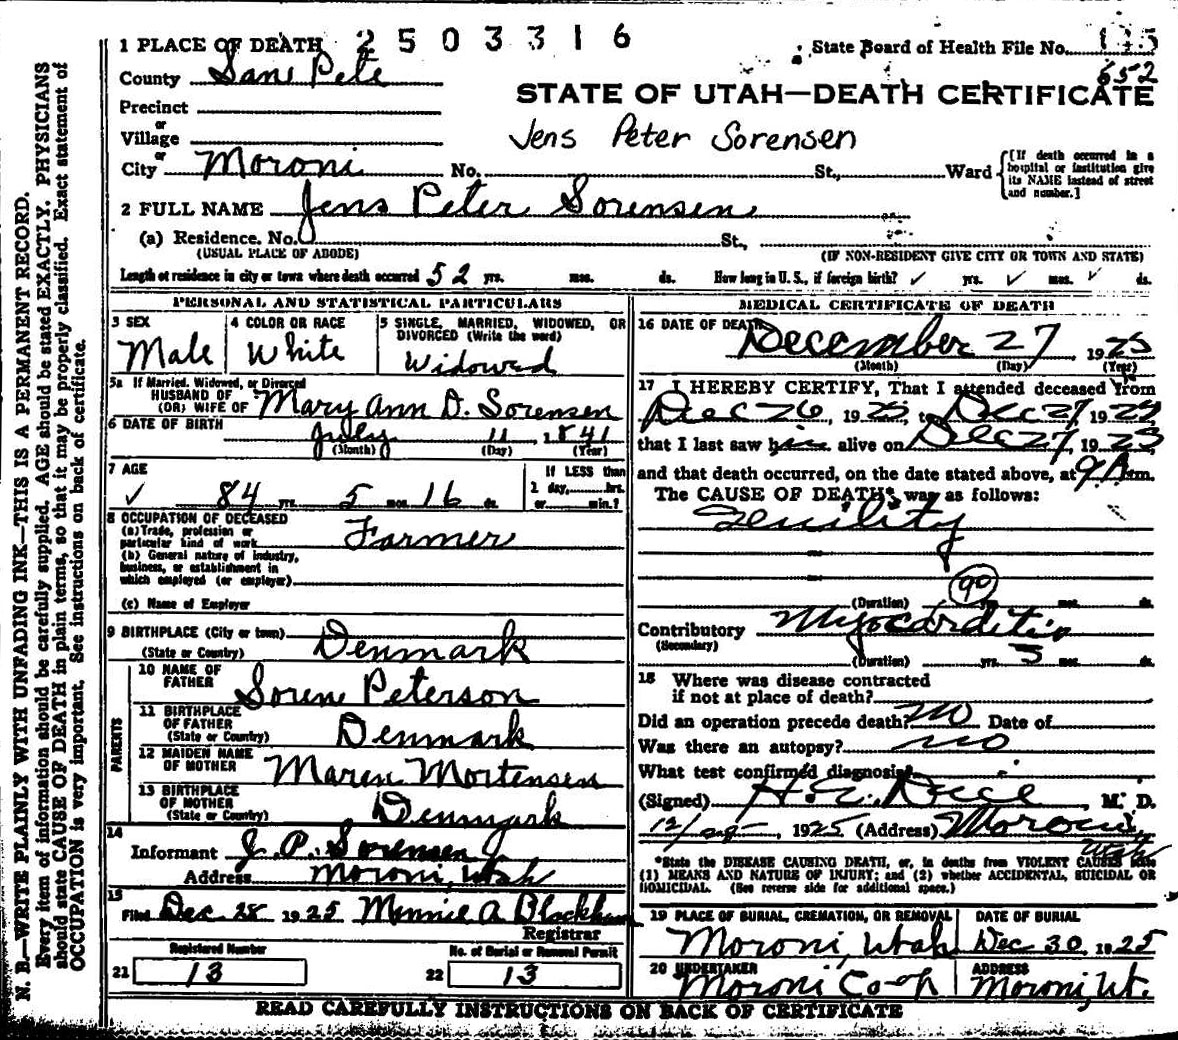 2503316
1 PLACE OF DEATH
State Board of Health File No.
652
County Sane Pete
STATE OF UTAH—DEATH CERTIFICATE
Precinct
or
Village
Jens Peter Sorensen
or
City Moroni No. St., Ward
{[If death occurred in a hospital or institution give its NAME instead of street and number.]
2 FULL NAME Jens Peter Sorensen
(a) Residence. No. St.,
(USUAL PLACE OF ABODE) (IF NON-RESIDENT GIVE CITY OR TOWN AND STATE)
Length of residence in city or town where death occurred 52 yrs. mos. ds. How long in U. S., if foreign birth? ✓ yrs. ✓ mos. ✓ ds.
PERSONAL AND STATISTICAL PARTICULARS
3 SEX
Male
4 COLOR OR RACE
White
5 SINGLE, MARRIED, WIDOWED, OR DIVORCED (Write the word)
Widowed
5a If Married, Widowed, or Divorced
HUSBAND OF
(OR) WIFE OF Mary Ann D. Sorensen
6 DATE OF BIRTH July 11, 1841
(Month) (Day) (Year)
7 AGE
✓ 84 yrs. 5 mos. 16 ds.
If LESS than
1 day, hrs.
or min.?
8 OCCUPATION OF DECEASED
(a) Trade, profession or
particular kind of work Farmer
(b) General nature of industry,
business, or establishment in
which employed (or employer)
(c) Name of Employer
9 BIRTHPLACE (City or town)
(State or Country) Denmark
PARENTS
10 NAME OF
FATHER Sorene Peterson
11 BIRTHPLACE
OF FATHER
(State or Country) Denmark
12 MAIDEN NAME
OF MOTHER Maren Mortensen
13 BIRTHPLACE
OF MOTHER
(State or Country) Denmark
14
Informant J. P. Sorensen J
Address Moroni, Utah
15
Filed Dec 28 1925 Minnie A Blackham
Registrar
Registered Number
21 13
No. of Burial or Removal Permit
22 13
MEDICAL CERTIFICATE OF DEATH
16 DATE OF DEATH
December 27, 1925
(Month) (Day) (Year)
17 I HEREBY CERTIFY, That I attended deceased from
Dec 26, 1925, to Dec 27, 1925
that I last saw him alive on Dec 27, 1925
and that death occurred, on the date stated above, at 9 A. m.
The CAUSE OF DEATH* was as follows:
Senility
(Duration) 90 mos. ds.
Contributory Myocarditis
(Secondary)
(Duration) yrs. 3 mos. ds.
18 Where was disease contracted
if not at place of death?
Did an operation precede death? No Date of
Was there an autopsy? no
What test confirmed diagnosis?
(Signed) M. D.
12/ , 1925 (Address) Moroni,
Utah
*State the DISEASE CAUSING DEATH, or, in deaths from VIOLENT CAUSES state
(1) MEANS AND NATURE OF INJURY; and (2) whether ACCIDENTAL, SUICIDAL OR
HOMICIDAL. (See reverse side for additional space.)
19 PLACE OF BURIAL, CREMATION, OR REMOVAL
Moroni, Utah
DATE OF BURIAL
Dec 30, 1925
20 UNDERTAKER
Moroni Co-op
ADDRESS
Moroni, Ut.
READ CAREFULLY INSTRUCTIONS ON BACK OF CERTIFICATE
N. B.—WRITE PLAINLY WITH UNFADING INK—THIS IS A PERMANENT RECORD.
Every item of information should be carefully supplied. AGE should be stated EXACTLY. PHYSICIANS
should state CAUSE OF DEATH in plain terms, so that it may be properly classified. Exact statement of
OCCUPATION is very important. See instructions on back of certificate.